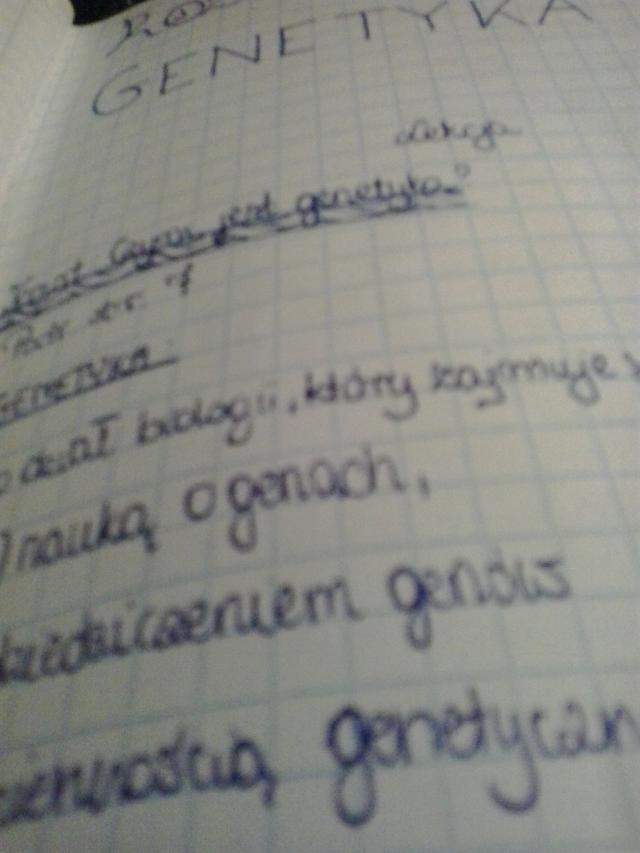 GENETYKA
Lekcja
jest genetyka?
GENETYKA
dział biologii, który zajmuje
nauką o genach,
dziedziczeniem genów
zmiennością genetyczn